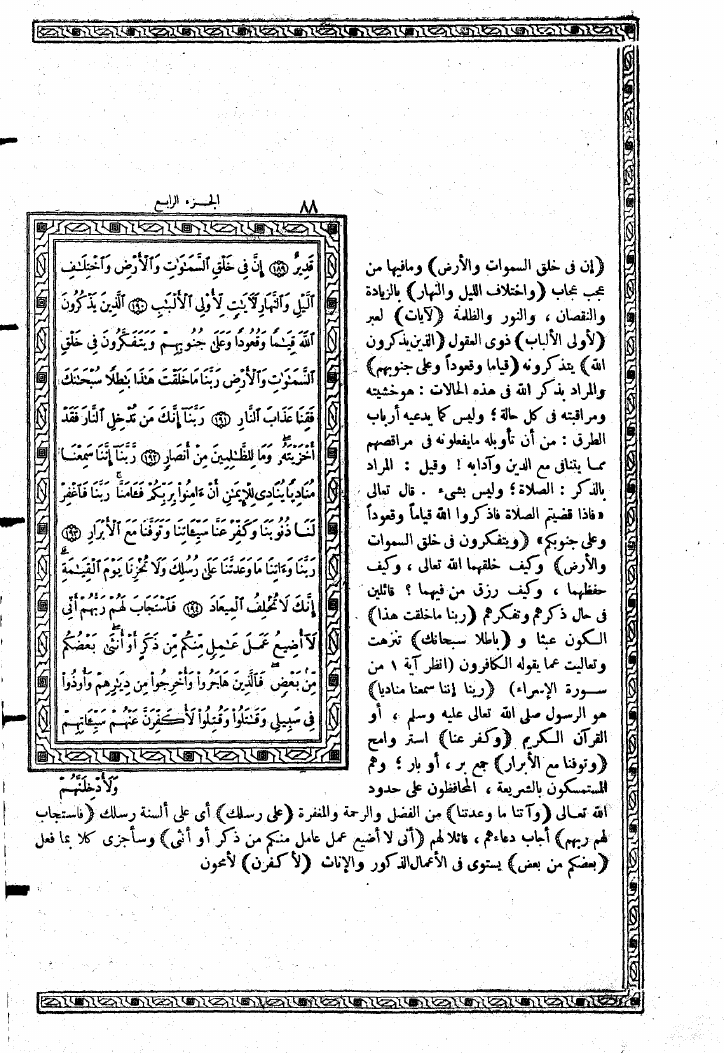 ٨٨
الجزء الرابع
(إن فى خلق السموات والأرض) ومافيها من
عجب عجاب (واختلاف الليل والنهار) بالزيادة
والنقصان ، والنور والظلمة (لآيات) لعبر
(لأولى الألباب) ذوى العقول (الذين يذكرون
الله) يتذكرونه (قياما وقعوداً وعلى جنوبهم)
والمراد بذكر الله فى هذه الحالات : هو خشيته
ومراقبته فى كل حالة ؛ وليس كما يدعيه أرباب
الطرق : من أن تأويله مايفعلونه فى مراقصهم
مما يتنافى مع الدين وآدابه ! وقيل : المراد
بالذكر : الصلاة ؛ وليس بشىء . قال تعالى
«فاذا قضيتم الصلاة فاذكروا الله قياماً وقعوداً
وعلى جنوبكم» (ويتفكرون فى خلق السموات
والأرض) وكيف خلقهما الله تعالى ، وكيف
حفظهما ، وكيف رزق من فيهما ؟ قائلين
فى حال ذكرهم وتفكرهم (ربنا ماخلقت هذا)
الكون عبثا و (باطلا سبحانك) تنزهت
وتعاليت عما يقوله الكافرون (انظر آية ١ من
سورة الإسراء) (ربنا إننا سمعنا مناديا)
هو الرسول صلى الله تعالى عليه وسلم ، أو
القرآن الكريم (وكفر عنا) استر وامح
(وتوفنا مع الأبرار) جمع بر ، أو بار ؛ وهم
المستمسكون بالشريعة ، المحافظون على حدود
الله تعالى (وآتنا ما وعدتنا) من الفضل والرحمة والمغفرة (على رسلك) أى على ألسنة رسلك (فاستجاب
لهم ربهم) أجاب دعاءهم ، قائلا لهم (أنى لا أضيع عمل عامل منكم من ذكر أو أنثى) وسأجزى كلا بما فعل
(بعضكم من بعض) يستوى فى الأعمال الذكور والإناث (لأكفرن) لأمحون
قَدِيرٌ ١٨٩ إِنَّ فِى خَلْقِ ٱلسَّمَٰوَٰتِ وَٱلْأَرْضِ وَٱخْتِلَٰفِ
ٱلَّيْلِ وَٱلنَّهَارِ لَأٓيَٰتٍ لِّأُو۟لِى ٱلْأَلْبَٰبِ ١٩٠ ٱلَّذِينَ يَذْكُرُونَ
ٱللَّهَ قِيَٰمًا وَقُعُودًا وَعَلَىٰ جُنُوبِهِمْ وَيَتَفَكَّرُونَ فِى خَلْقِ
ٱلسَّمَٰوَٰتِ وَٱلْأَرْضِ رَبَّنَا مَا خَلَقْتَ هَٰذَا بَٰطِلًا سُبْحَٰنَكَ
فَقِنَا عَذَابَ ٱلنَّارِ ١٩١ رَبَّنَآ إِنَّكَ مَن تُدْخِلِ ٱلنَّارَ فَقَدْ
أَخْزَيْتَهُۥ وَمَا لِلظَّٰلِمِينَ مِنْ أَنصَارٍ ١٩٢ رَّبَّنَآ إِنَّنَا سَمِعْنَا
مُنَادِيًا يُنَادِى لِلْإِيمَٰنِ أَنْ ءَامِنُوا۟ بِرَبِّكُمْ فَـَٔامَنَّا رَبَّنَا فَٱغْفِرْ
لَنَا ذُنُوبَنَا وَكَفِّرْ عَنَّا سَيِّـَٔاتِنَا وَتَوَفَّنَا مَعَ ٱلْأَبْرَارِ ١٩٣
رَبَّنَا وَءَاتِنَا مَا وَعَدتَّنَا عَلَىٰ رُسُلِكَ وَلَا تُخْزِنَا يَوْمَ ٱلْقِيَٰمَةِ
إِنَّكَ لَا تُخْلِفُ ٱلْمِيعَادَ ١٩٤ فَٱسْتَجَابَ لَهُمْ رَبُّهُمْ أَنِّى
لَآ أُضِيعُ عَمَلَ عَٰمِلٍ مِّنكُم مِّن ذَكَرٍ أَوْ أُنثَىٰ بَعْضُكُم
مِّنۢ بَعْضٍ فَٱلَّذِينَ هَاجَرُوا۟ وَأُخْرِجُوا۟ مِن دِيَٰرِهِمْ وَأُوذُوا۟
فِى سَبِيلِى وَقَٰتَلُوا۟ وَقُتِلُوا۟ لَأُكَفِّرَنَّ عَنْهُمْ سَيِّـَٔاتِهِمْ
وَلَأُدْخِلَنَّهُمْ